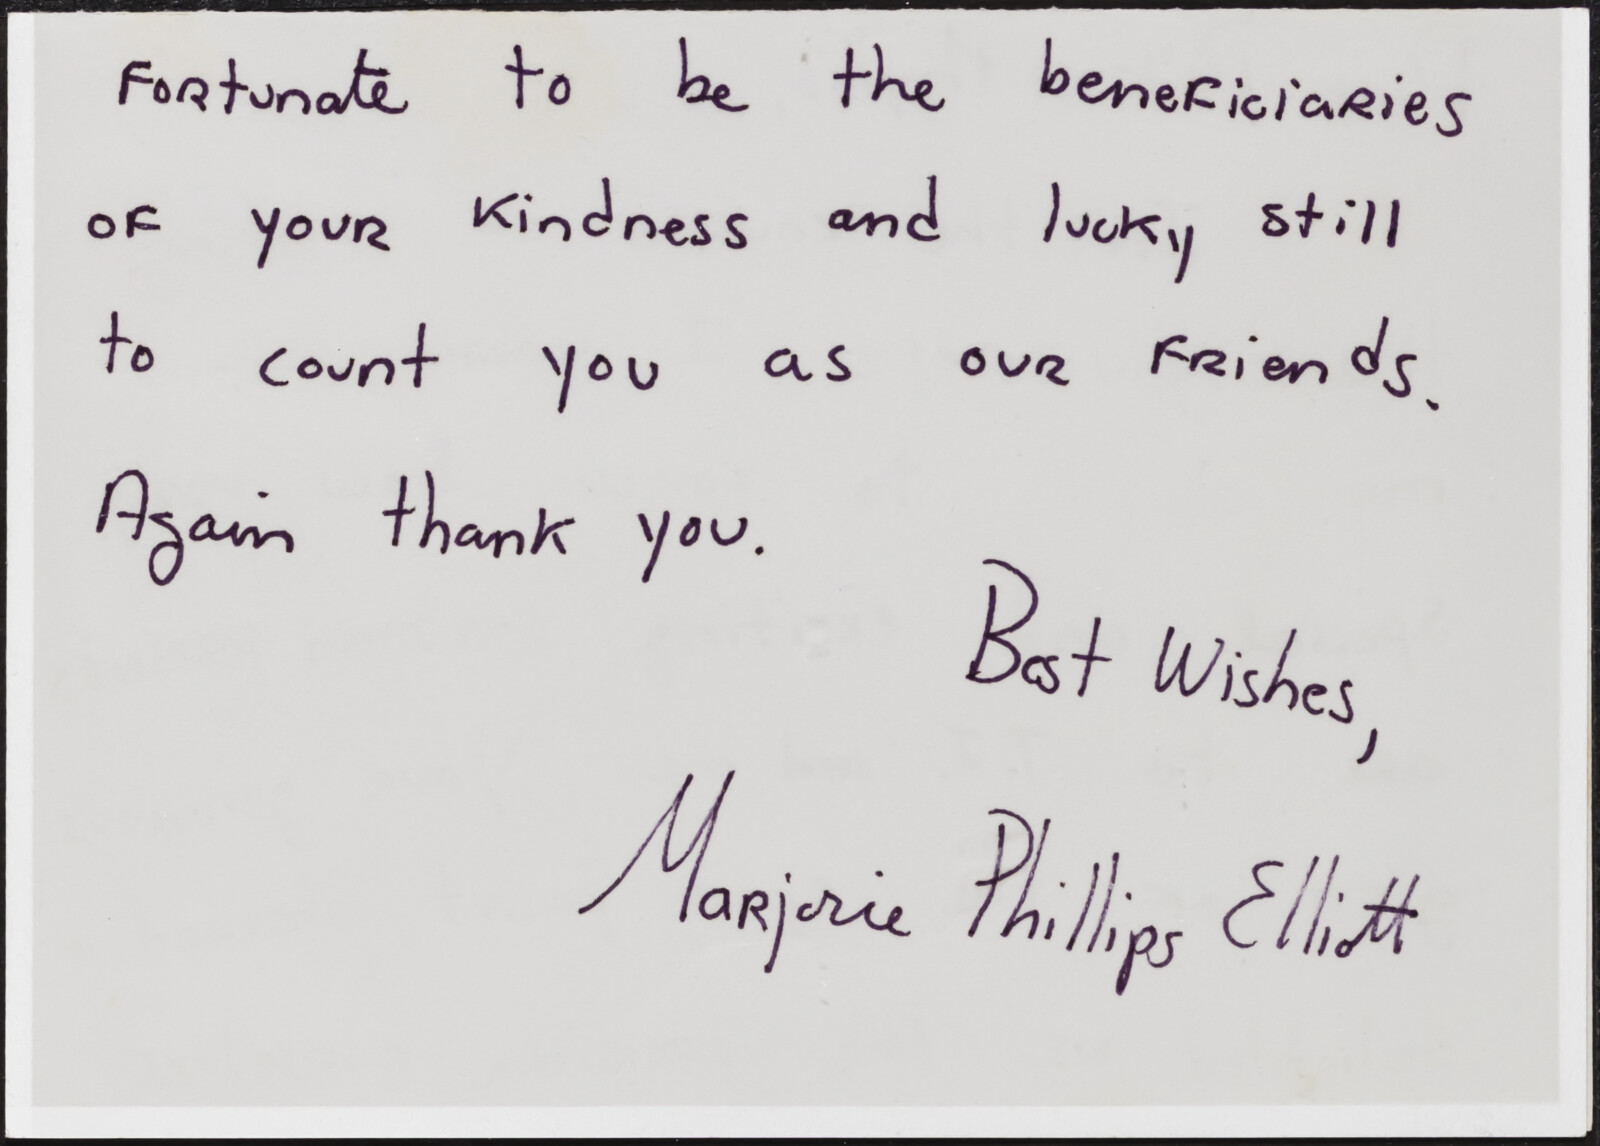 Fortunate to be the beneficiaries
of your kindness and lucky still
to count you as our friends.
Again thank you.
Best Wishes,
Marjorie Phillips Elliott